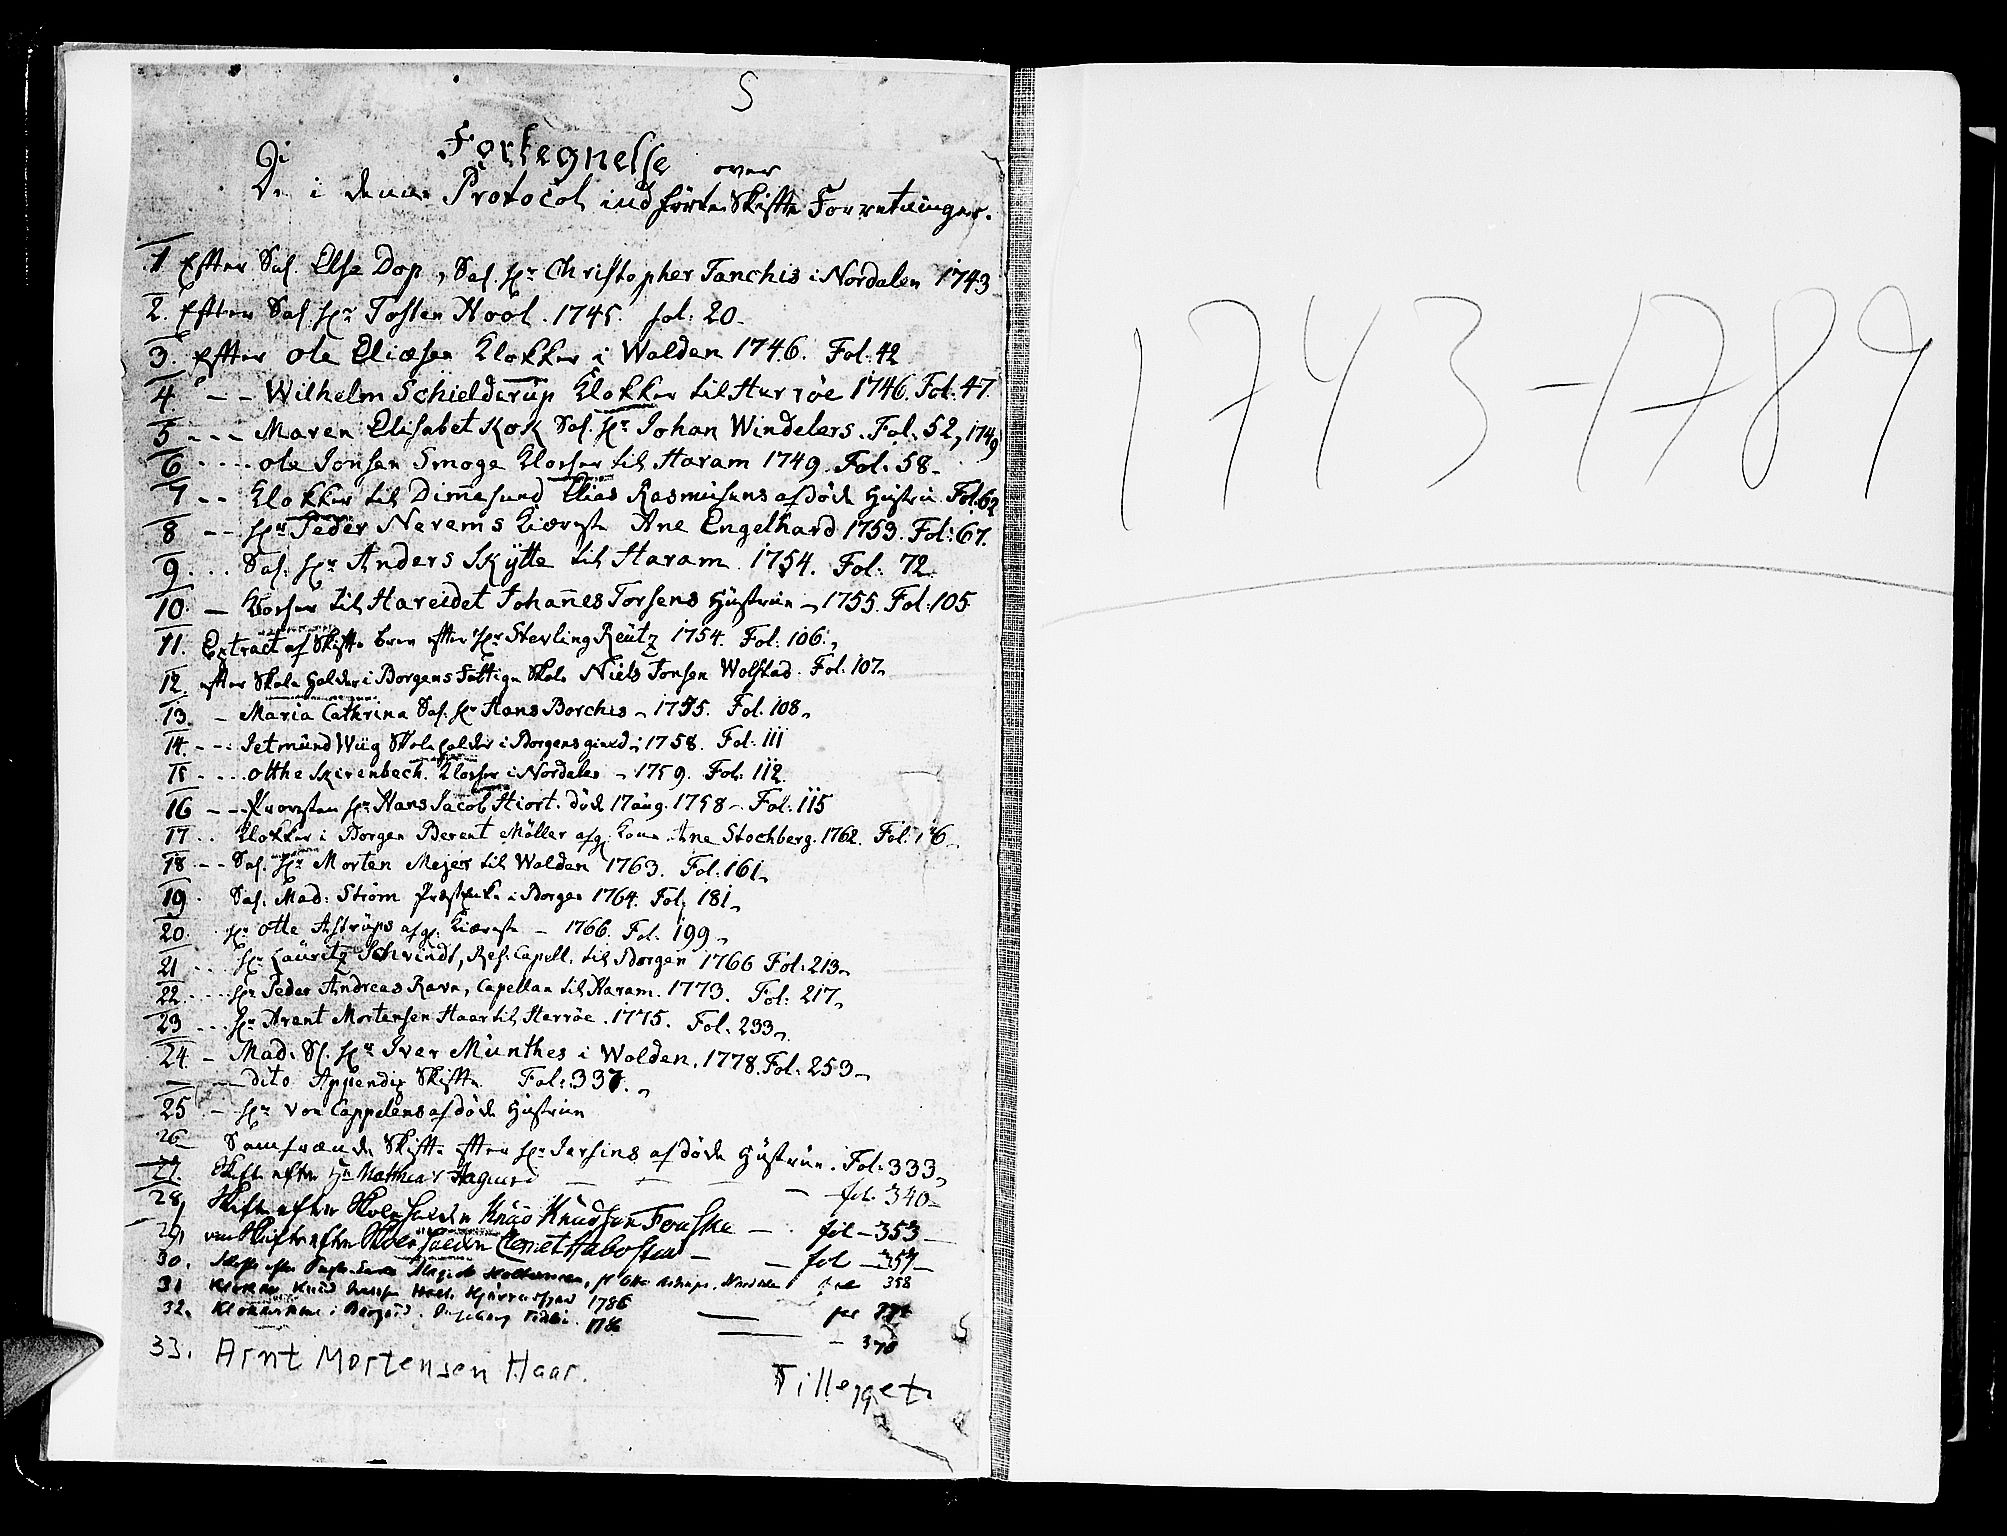 S
Fortegnelse
over
De i denne Protocol indförte Skifte Forretninger.
1 Efter Sal. Else Dop, Sal. Hr Christopher Tanchis i Nordalen 1743
2. Efter Sal. Hr Tosten Hool. 1745. fol: 20-
3. Efter Ole Eliæsen Klokker i Wolden 1746. Fol: 42
4 - - Wilhelm Schielderup Klokker til Herröe 1746. Fol: 47.
5 - - - Maren Elisabet Kok Sal. Hr Johan Windelers. Fol. 52, 1749
6 - - - - Ole Jonsen Smoge Klocker til Haram 1749. Fol: 58-
7 - - Klokker til Dim̄esund Elias Rasmusens afdöde Hustrue Fol. 62
8 - - Hr Peder Nerems Kiæreste Ane Engelhard 1753. Fol: 67.
9 . . . Sal. Hr Anders Skÿtte til Haram 1754. Fol: 72.
10. - Klocker til Hareidet Johan̄es Torsens Hustrue - 1755. Fol: 105
11. Extract af Skifte brev efter Hr Sterling Reutz 1754. Fol: 106.
12. efter Skole Holder i Borgens Fattige Skole Niels Jonsen Wolstad. Fol: 107
13. - Maria Cathrina Sal. Hr Hans Borchis - 1755. Fol. 108
14. - - Jetmund Wiig Skoleholder i Borgens gield - 1758. Fol: 111
15. - - . Otthe Skirenbech. Klocker i Nordalen - 1759. Fol: 112.
16 - - Provsten Hr Hans Jacob Hiort. död 17 aug. 1758 - Fol: 115
17 . . Klokker i Borgen Berent Möller afg. Kone Ane Stochberg. 1762. Fol:
18 - - Sal. Hr Morten Mejer til Wolden 1763. Fol: 161
19. Sal. Mad: Ström Præsteenke i Borgen 1764. Fol: 181
20. Hr Otte Astrups afg. Kiæreste - 1766. Fol. 199
21 . . . Hr Lauritz Schvindt, Res: Capell. til Borgen 1766 Fol: 213
22 - - - Hr Peder Andreas Ravn, Capellan til Haram. 1773. Fol: 217
23 . . . Hr Arent Mortensen Haar til Herröe. 1775. Fol: 233
24. - Mad. Sl. Hr Iver Munthes i Wolden. 1778. Fol: 253
- - dito Appendix Skifte Fol: 337.
25 - Hr von Cappelens afdöde Hustrue
26 Samfrænde Skifte efter Hr Jersins afdöde Hustrue. Fol: 333
27. Skifte efter Hr Mathias Hagerup - - - - fol. 340-
28, Skifte efter Skoleholder Knud Knudsen Fouske - . fol - 353 -
29, Skifte efter Skoleholder - - fol - 357 -
30. Skifte efter Nordalen fol 358
31 Klokker Knud 1786
32. i Borgund. 1786
- 370
33. Arnt Mortensen Haar. Tillegget
1743-1789